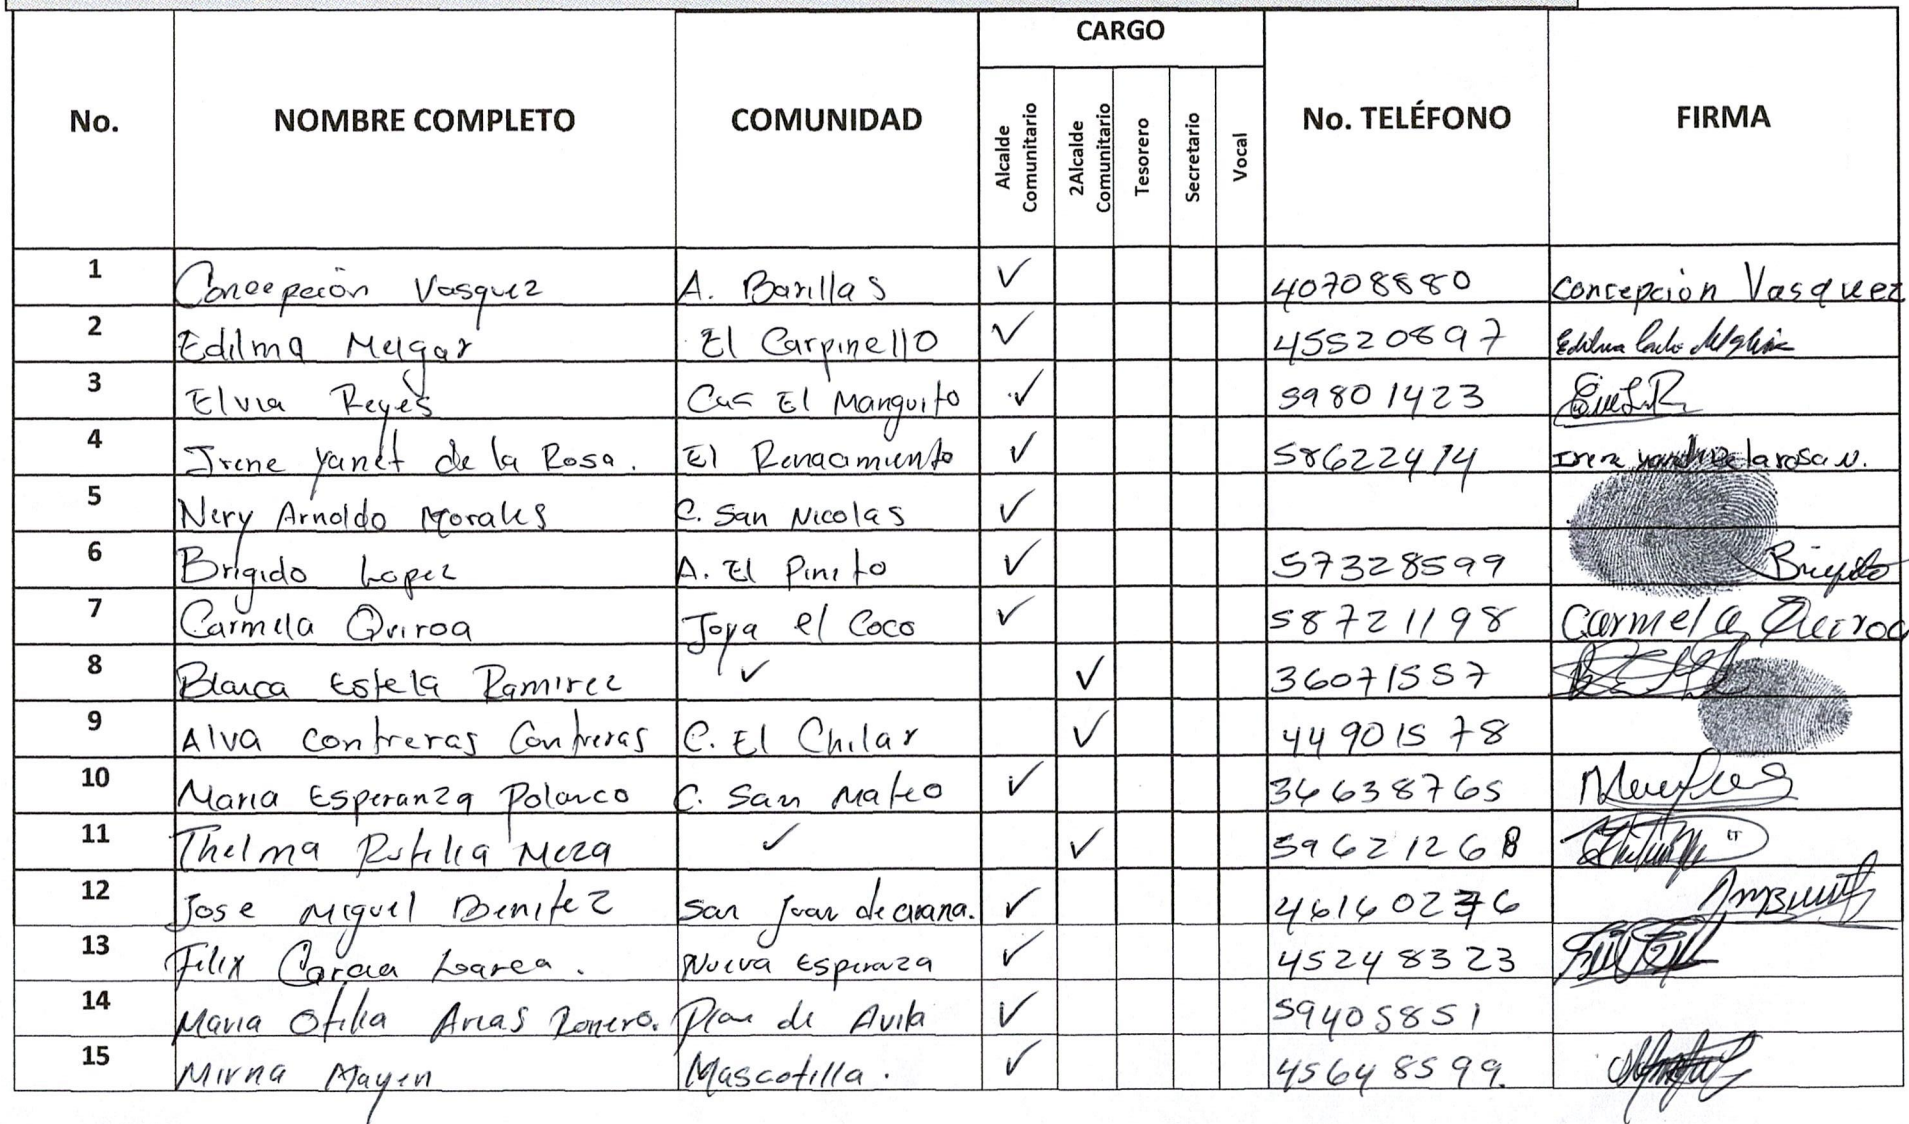 No. NOMBRE COMPLETO COMUNIDAD CARGO No. TELÉFONO FIRMA
Alcalde Comunitario 2Alcalde Comunitario Tesorero Secretario Vocal
1 Concepción Vasquez A. Barillas ✓ 40708880 Concepción Vasquez
2 Edilma Melgar El Carpinello ✓ 45520897 Edilma
3 Elvia Reyes Cas El Manguito ✓ 59801423
4 Irene Yanet de la Rosa. El Renacimiento ✓ 58622414 Irene de la rosa N.
5 Nery Arnoldo Morales C. San Nicolas ✓
6 Brigido Lopez A. El Pinito ✓ 57328599
7 Carmela Quiroa Joya el Coco ✓ 58721198 Carmela Quiroa
8 Blanca Estela Ramirez ✓ ✓ 36071557
9 Alva Contreras Contreras C. El Chilar ✓ 44901578
10 Maria Esperanza Polanco C. San Mateo ✓ 36638765
11 Thelma Rutilia Meza ✓ ✓ 59621268
12 Jose Miguel Benitez San Juan de arana. ✓ 46160276
13 Felix Garcia Loarca. Nueva Esperanza ✓ 45248323
14 Maria Otilia Arias Romero. Plan de Avila ✓ 59405851
15 Mirna Mayen Mascotilla. ✓ 45648599.